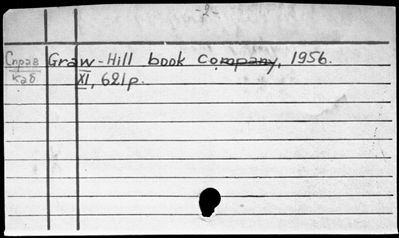 -2-
Справ Graw-Hill book company, 1956.
каб XI, 621p.